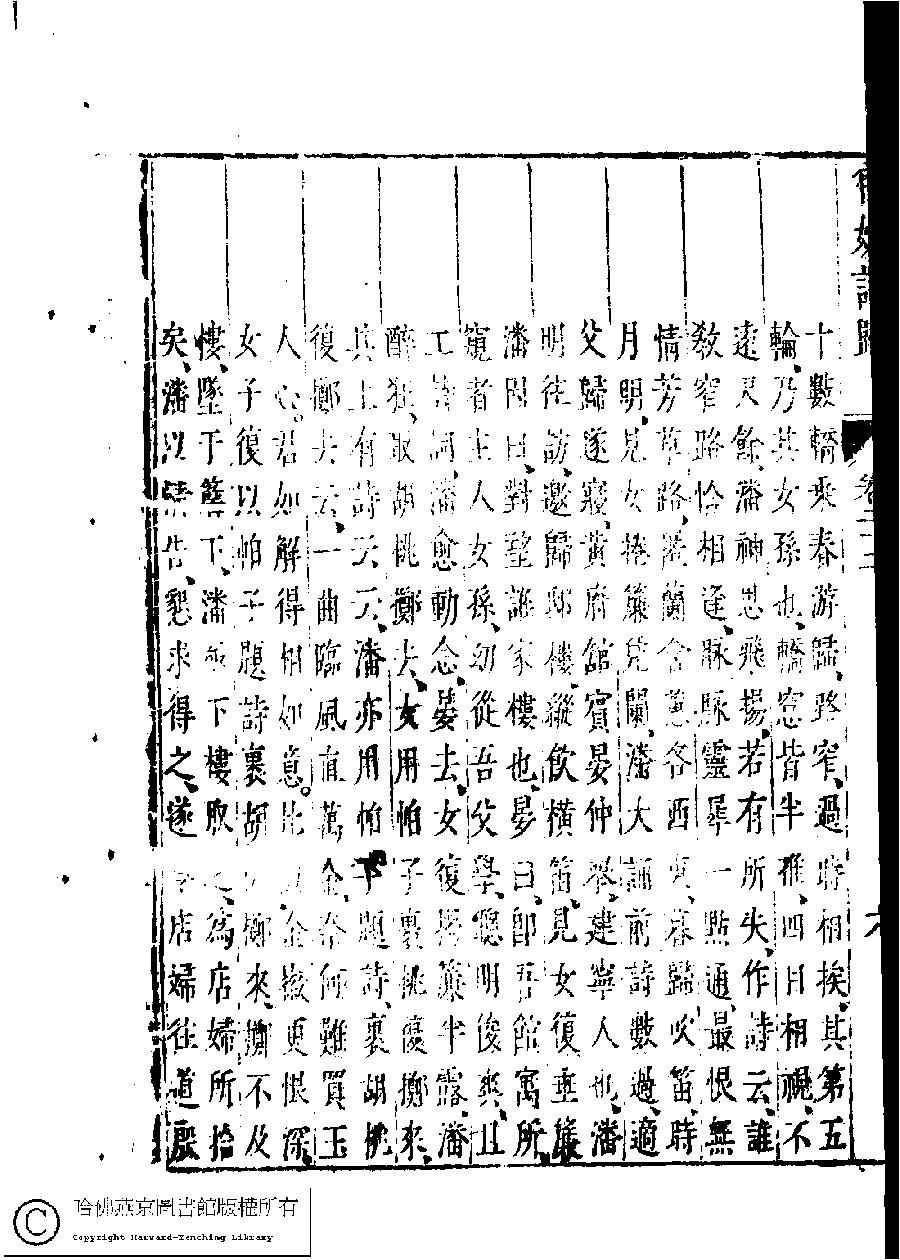 名媛詩歸
卷二十
六
十數轎乘春游歸、路窄、過時相挨、其第五
輪、乃其女孫也、轎窓皆半推、四目相視、不
遠尺餘、潘神思飛揚、若有所失、作詩云、誰
教窄路恰相逢、脉脉靈犀一點通、最恨無
情芳草路、匿蘭含蕙各西東、暮歸吹笛、時
月明、見女捲簾凭闌、潘大誦前詩數過、適
父歸遂寢、黃府館賓晏仲舉、建寧人也、潘
明往訪、邀歸邸樓、縱飲橫笛、見女復垂簾、
潘因曰、對望誰家樓也、晏曰、即吾館寓、所
窺者主人女孫、幼從吾父學、聰明俊爽、且
工詩詞、潘愈動念、晏去、女復捲簾半露、潘
醉狂、取胡桃擲去、女用帕子裹桃復擲來、
其上有詩云云、潘亦用帕子題詩、裹胡桃
復擲去云、一曲臨風直萬金、奈何難買玉
人心。君如解得相如意。比似金徽更恨深、
女子復以帕子題詩裹胡桃擲來、擲不及
樓、墜于簷下、潘亟下樓取之、為店婦所拾
矣、潘以情告、懇求得之、遂令店婦往道殷
哈佛燕京圖書館版權所有
© Copyright Harvard-Yenching Library